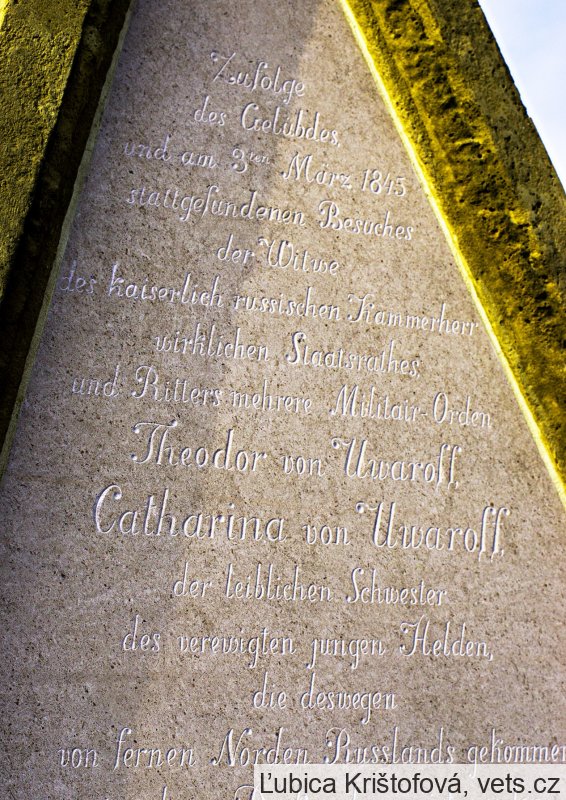 Zufolge
des Gelübdes,
und am 3ten März 1845
stattgefundenen Besuches
der Witwe
des kaiserlich russischen Kammerherr
wirklichen Staatsrathes,
und Ritters mehrere Militair-Orden
Theodor von Uwaroff,
Catharina von Uwaroff,
der leiblichen Schwester
des verewigten jungen Helden,
die deswegen
von fernen Norden Russlands gekommen
Ľubica Krištofová, vets.cz